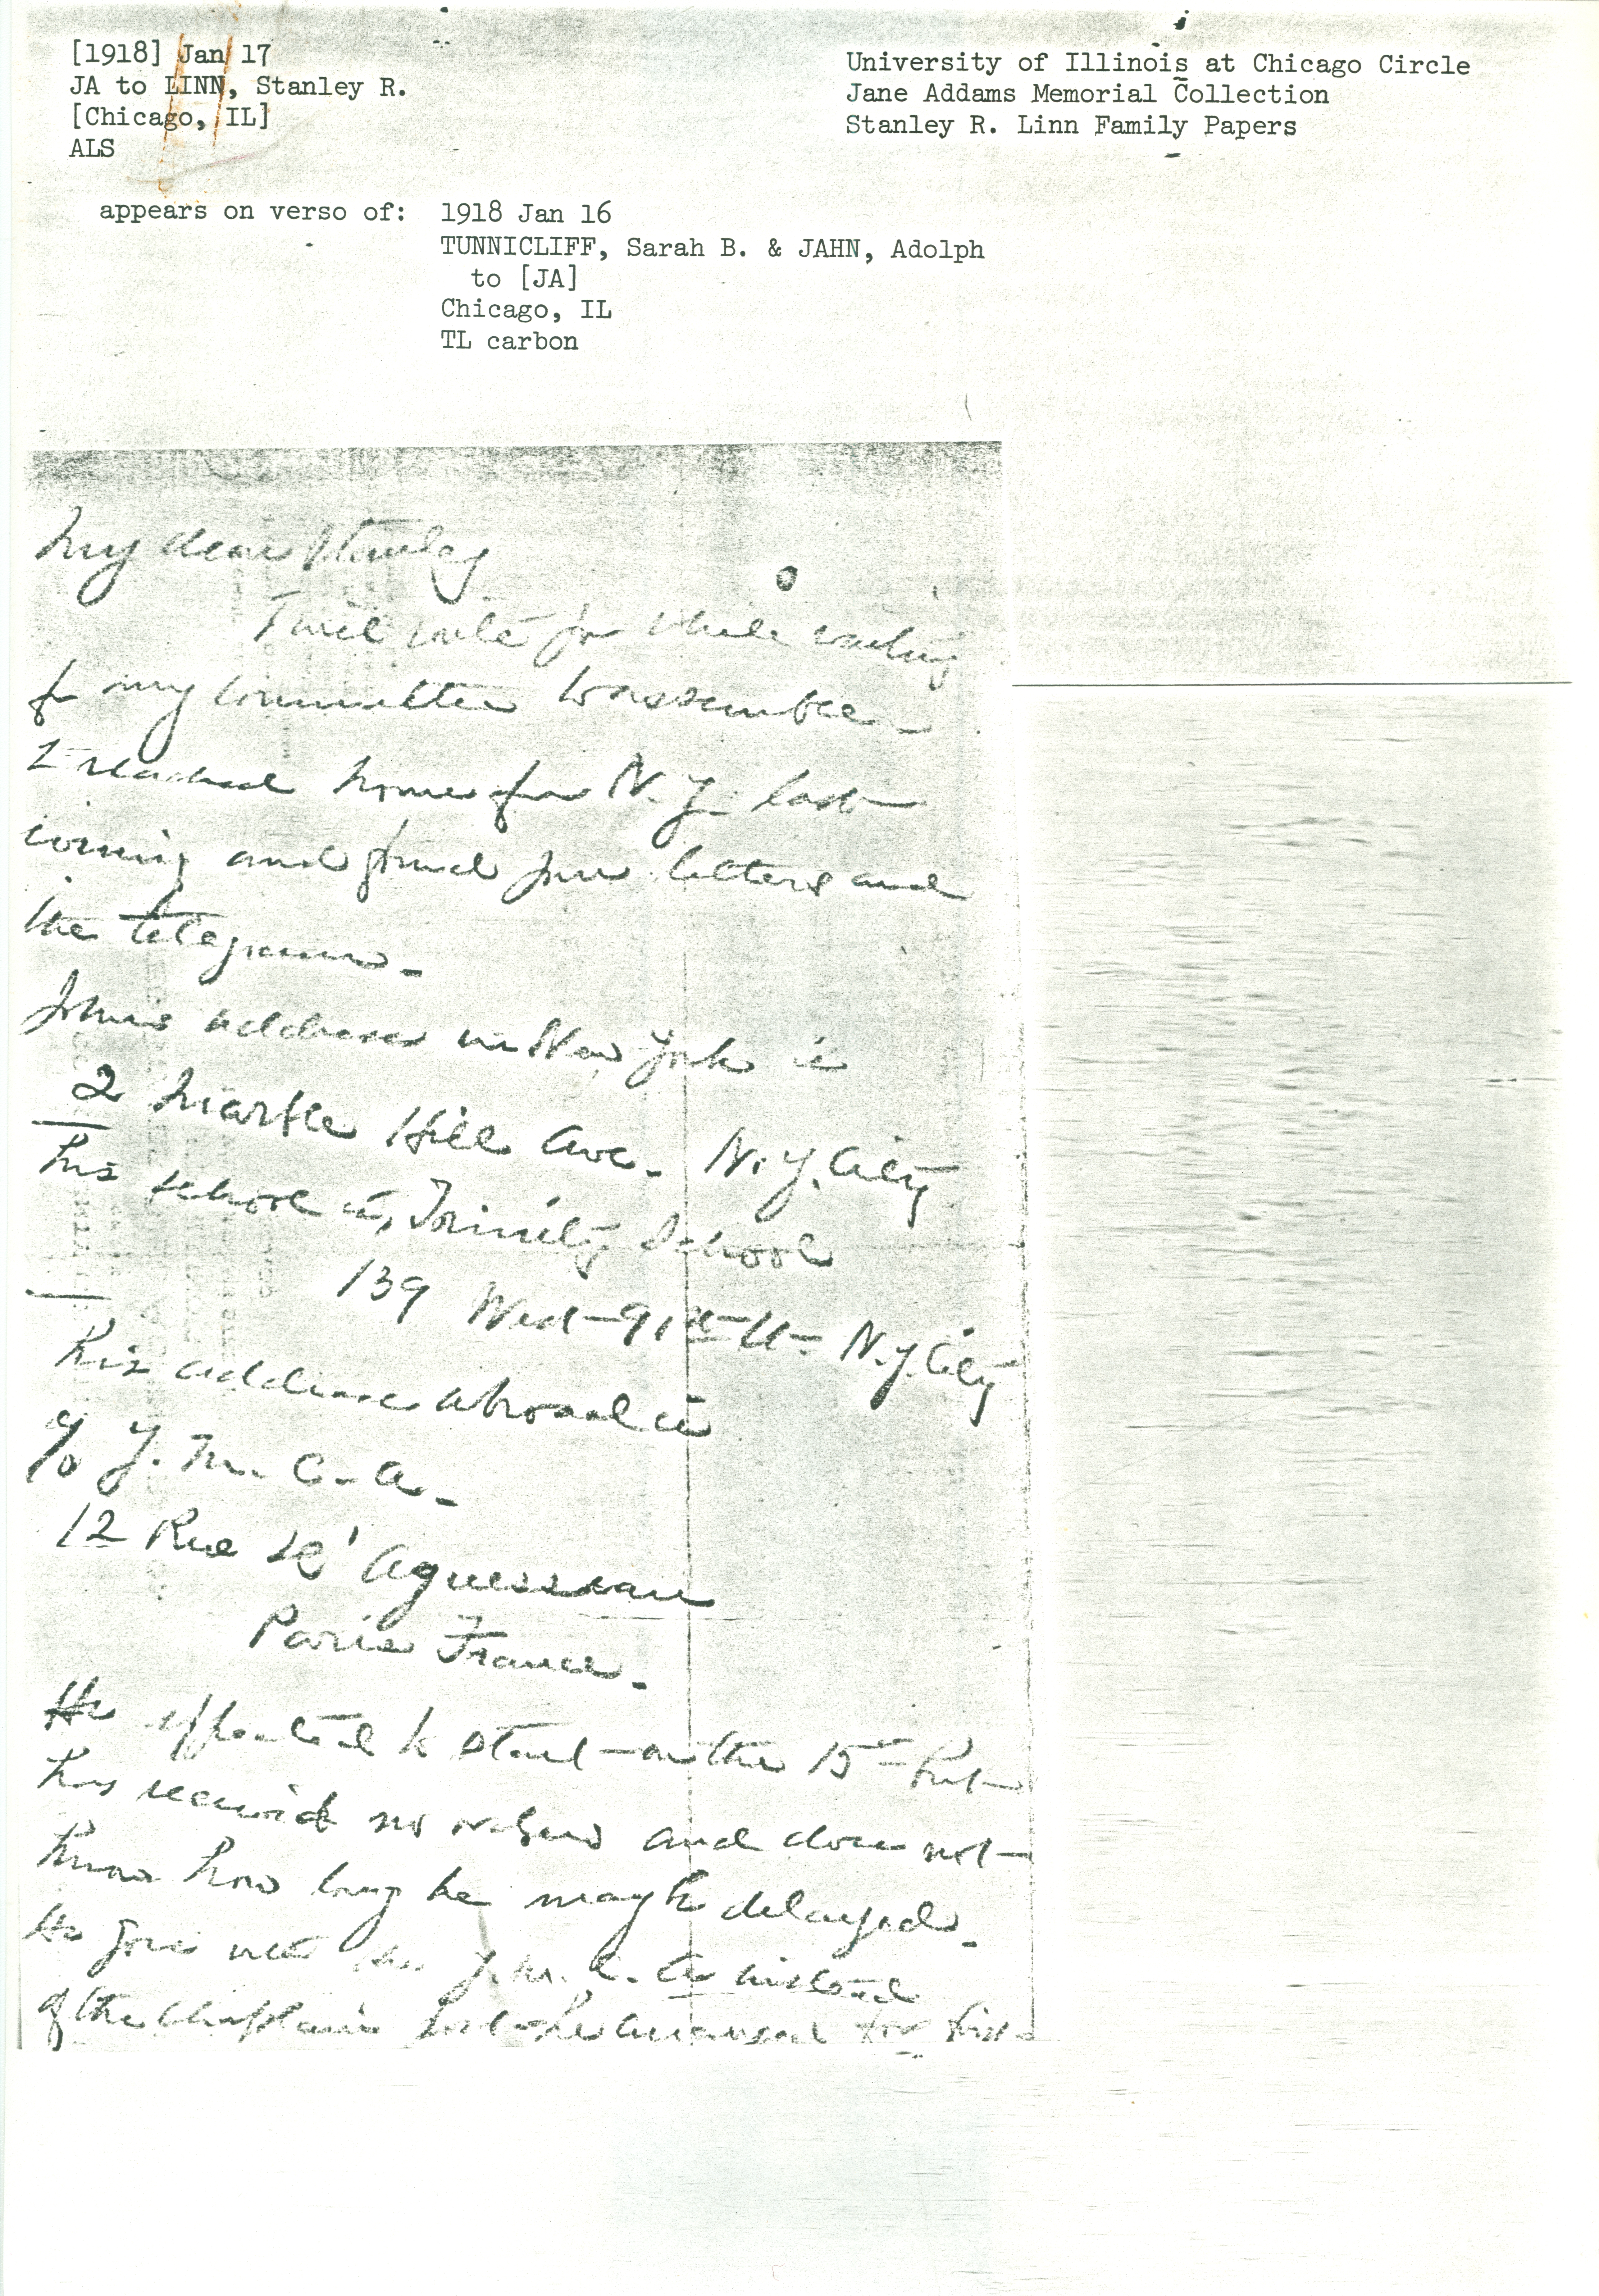 [1918] Jan 17
JA to LINN, Stanley R.
[Chicago, IL]
ALS
University of Illinois at Chicago Circle
Jane Addams Memorial Collection
Stanley R. Linn Family Papers
appears on verso of: 1918 Jan 16
TUNNICLIFF, Sarah B. & JAHN, Adolph
to [JA]
Chicago, IL
TL carbon
My dear Stanley
I will write you while waiting
for my committee to assemble -
I reached home from N.Y. last
evening and found your letters and
the telegram -
John's address in New York is
2 Marble Hill Ave - N.Y. City
his school is, Trinity School
139 West 91st St - N.Y. City
his address abroad is
c/o Y. M. C. A -
12 Rue d'Aguesseau
Paris France -
He expected to start on the 15th but
has received no orders and does not
know how long he may be delayed -
He goes with the Y. M. C. A instead
of the Chaplain